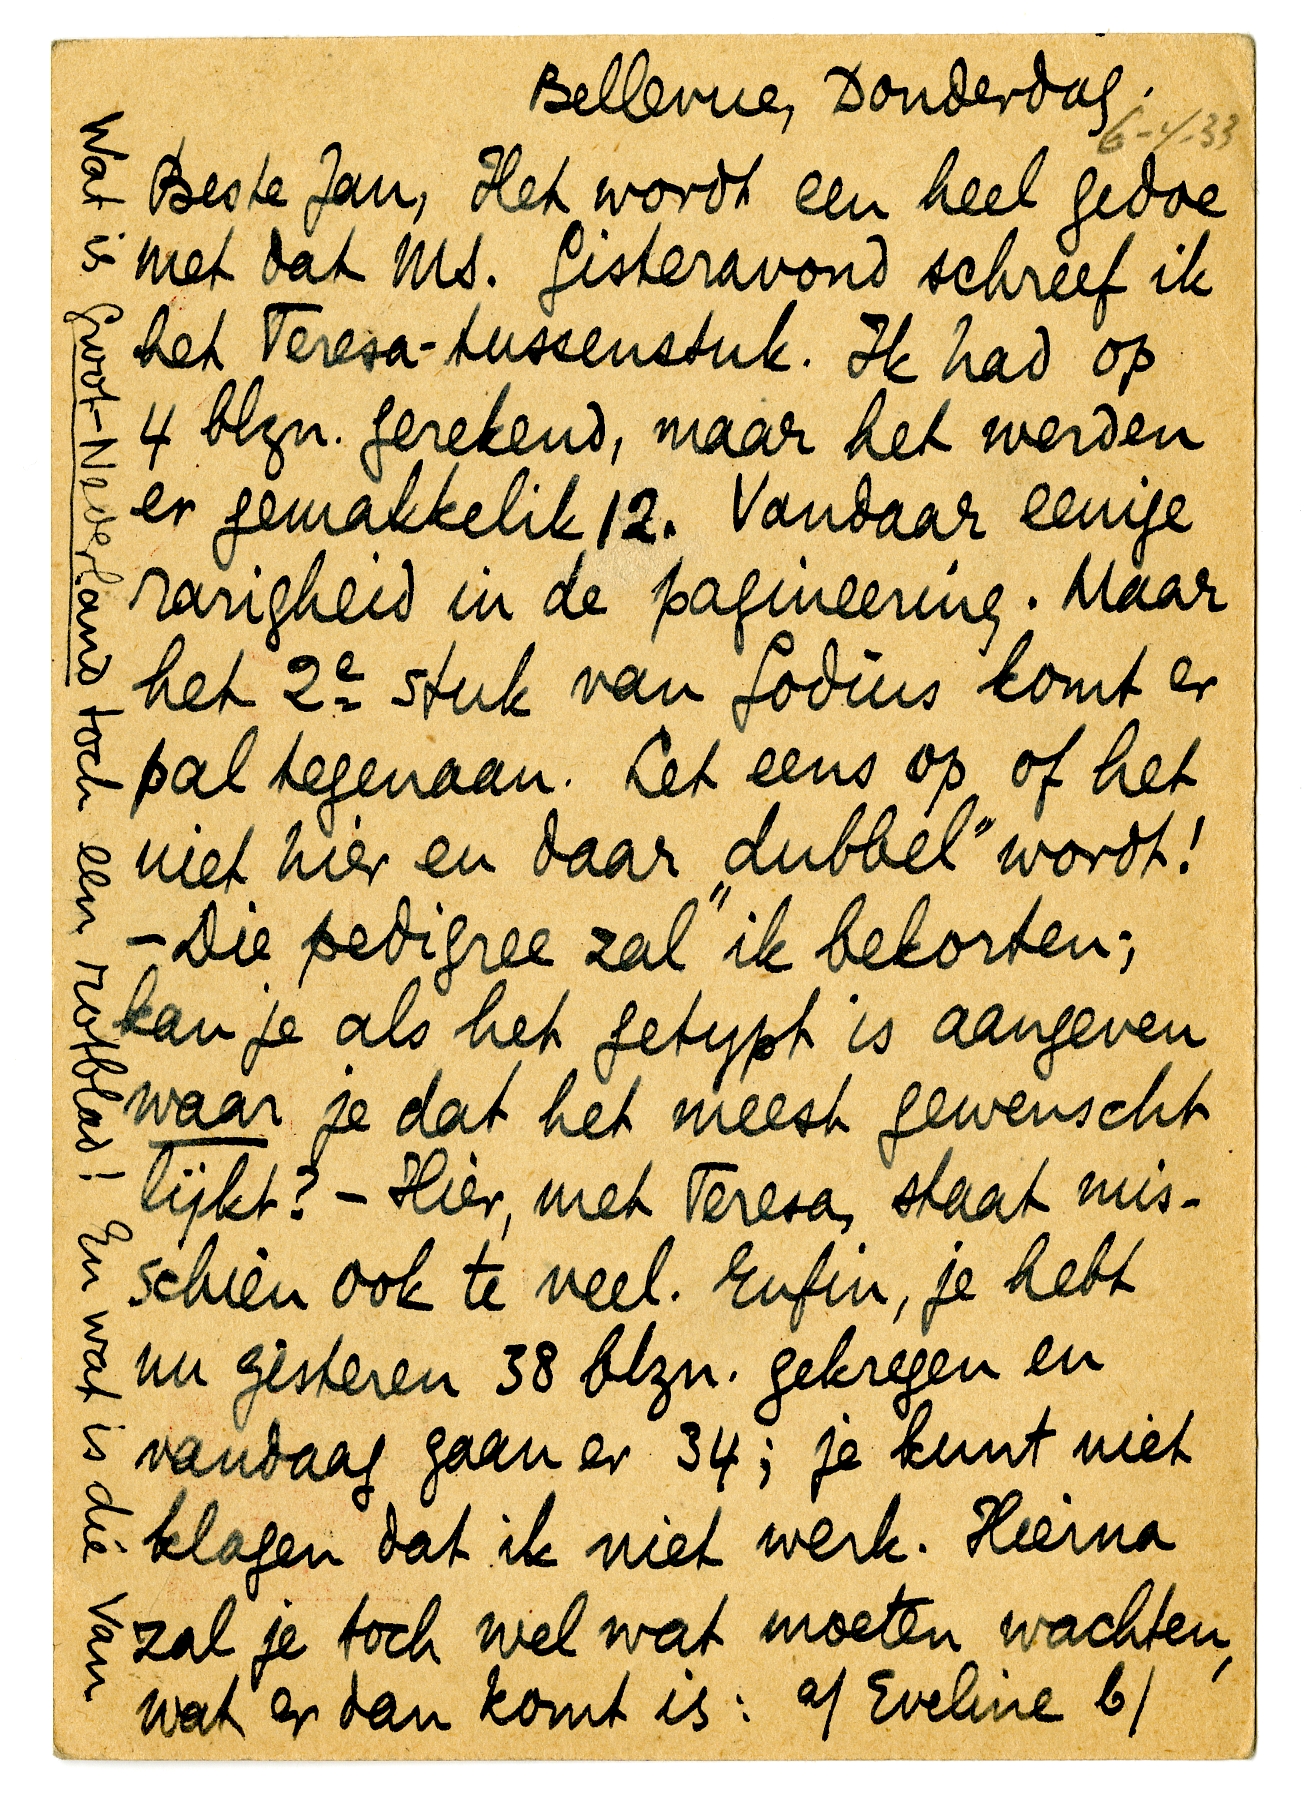 Bellevue, Donderdag.
6-4-33
Beste Jan, Het wordt een heel gedoe
met dat Ms. Gisteravond schreef ik
het Teresa-tussenstuk. Ik had op
4 blzn. gerekend, maar het werden
er gemakkelik 12. Vandaar eenige
rarigheid in de pagineering. Maar
het 2e stuk van Godius komt er
pal tegenaan. Let eens op of het
niet hier en daar „dubbel” wordt!
– Die pedigree zal ik bekorten;
kan je als het getypt is aangeven
waar je dat het meest gewenscht
lijkt? – Hier, met Teresa, staat mis-
schien ook te veel. Enfin, je hebt
nu gisteren 38 blzn. gekregen en
vandaag gaan er 34; je kunt niet
klagen dat ik niet werk. Hierna
zal je toch wel wat moeten wachten,
wat er dan komt is: a/ Eveline b/
Wat is Groot-Nederland toch een rotblad! En wat is die Van